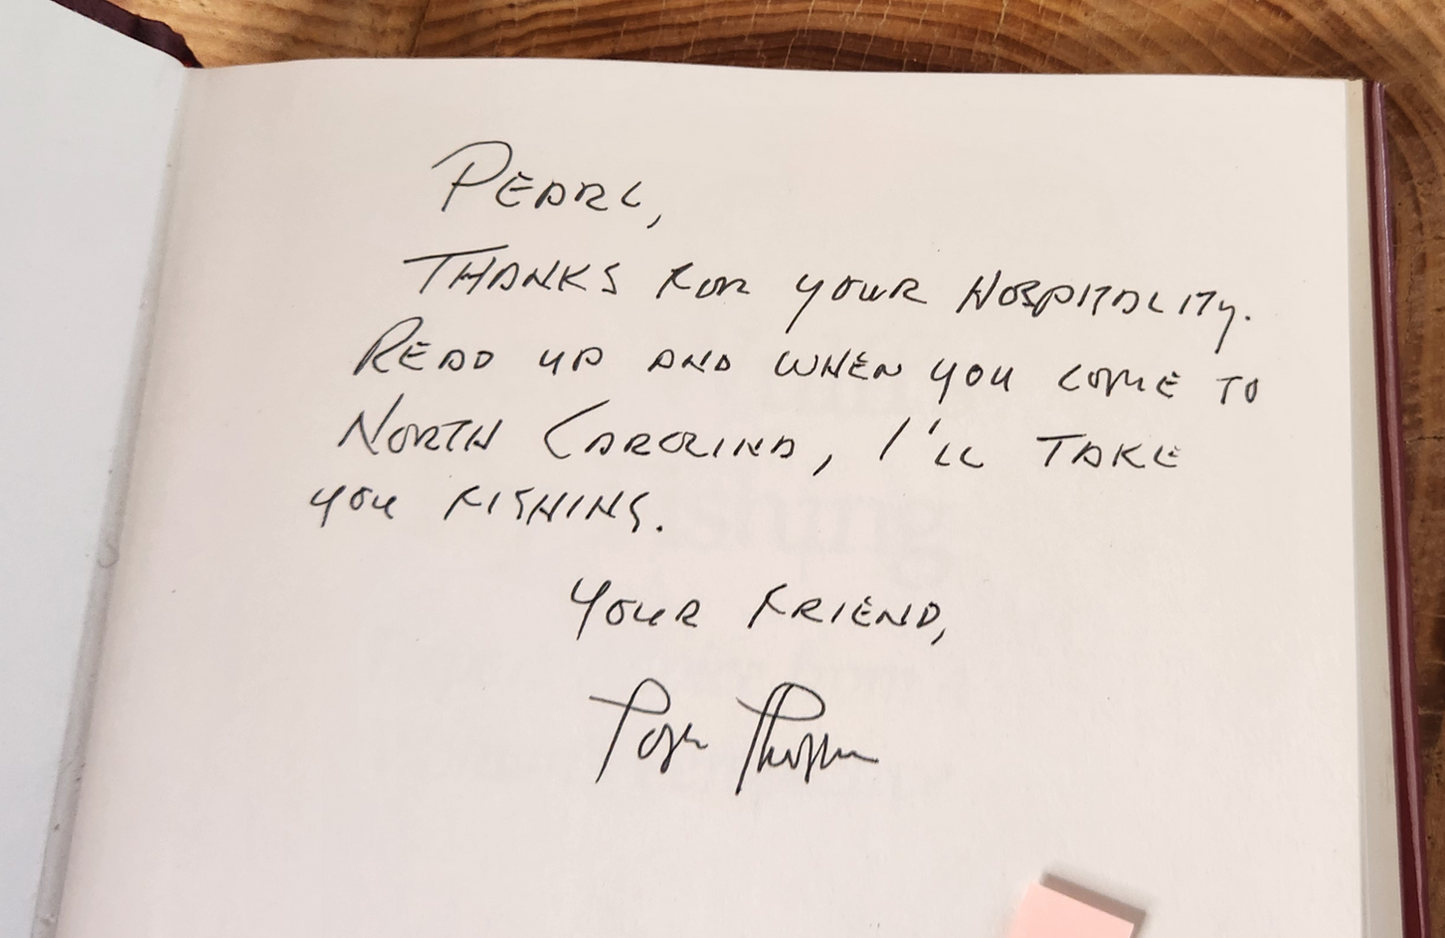 PEARL,
THANKS FOR YOUR HOSPITALITY.
READ UP AND WHEN YOU COME TO
NORTH CAROLINA, I'LL TAKE
YOU FISHING.
YOUR FRIEND,